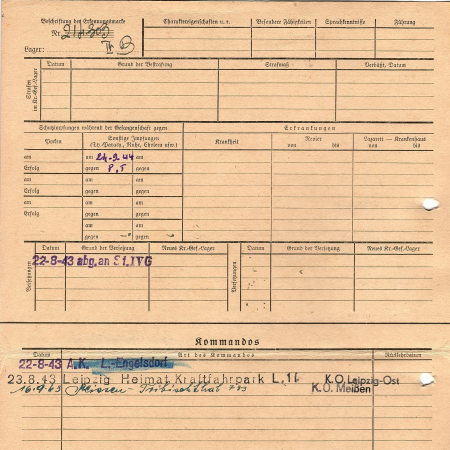 Beschriftung der Erkennungsmarke Charaktereigenschaften u. s. Besondere Fähigkeiten Sprachkenntnisse Führung
Nr.
Lager: IV B
Strafen im Kr.-Gef.-Lager Datum Grund der Bestrafung Strafmaß Verbüßt, Datum
Schutzimpfungen während der Gefangenschaft gegen Erkrankungen
Pocken Sonstige Impfungen (Ty.-Paraty., Ruhr, Cholera usw.) Krankheit Revier von bis Lazarett — Krankenhaus von bis
am am 24.2.44 am
Erfolg gegen P.T gegen
am am am
Erfolg gegen gegen
am am am
Erfolg gegen gegen
am am
gegen gegen
Versetzungen Datum Grund der Versetzung Neues Kr.-Gef.-Lager Versetzungen Datum Grund der Versetzung Neues Kr.-Gef.-Lager
22-8-43 abg. an St. IV G
Kommandos
Datum Art des Kommandos Rückkehrdatum
22-8-43 A.K. L.-Engelsdorf
23.8.43 Leipzig Heimat Kraftfahrpark L, 11 K.O. Leipzig-Ost
16.9.43 Meissen - Triebischthal 723 K.O. Meißen